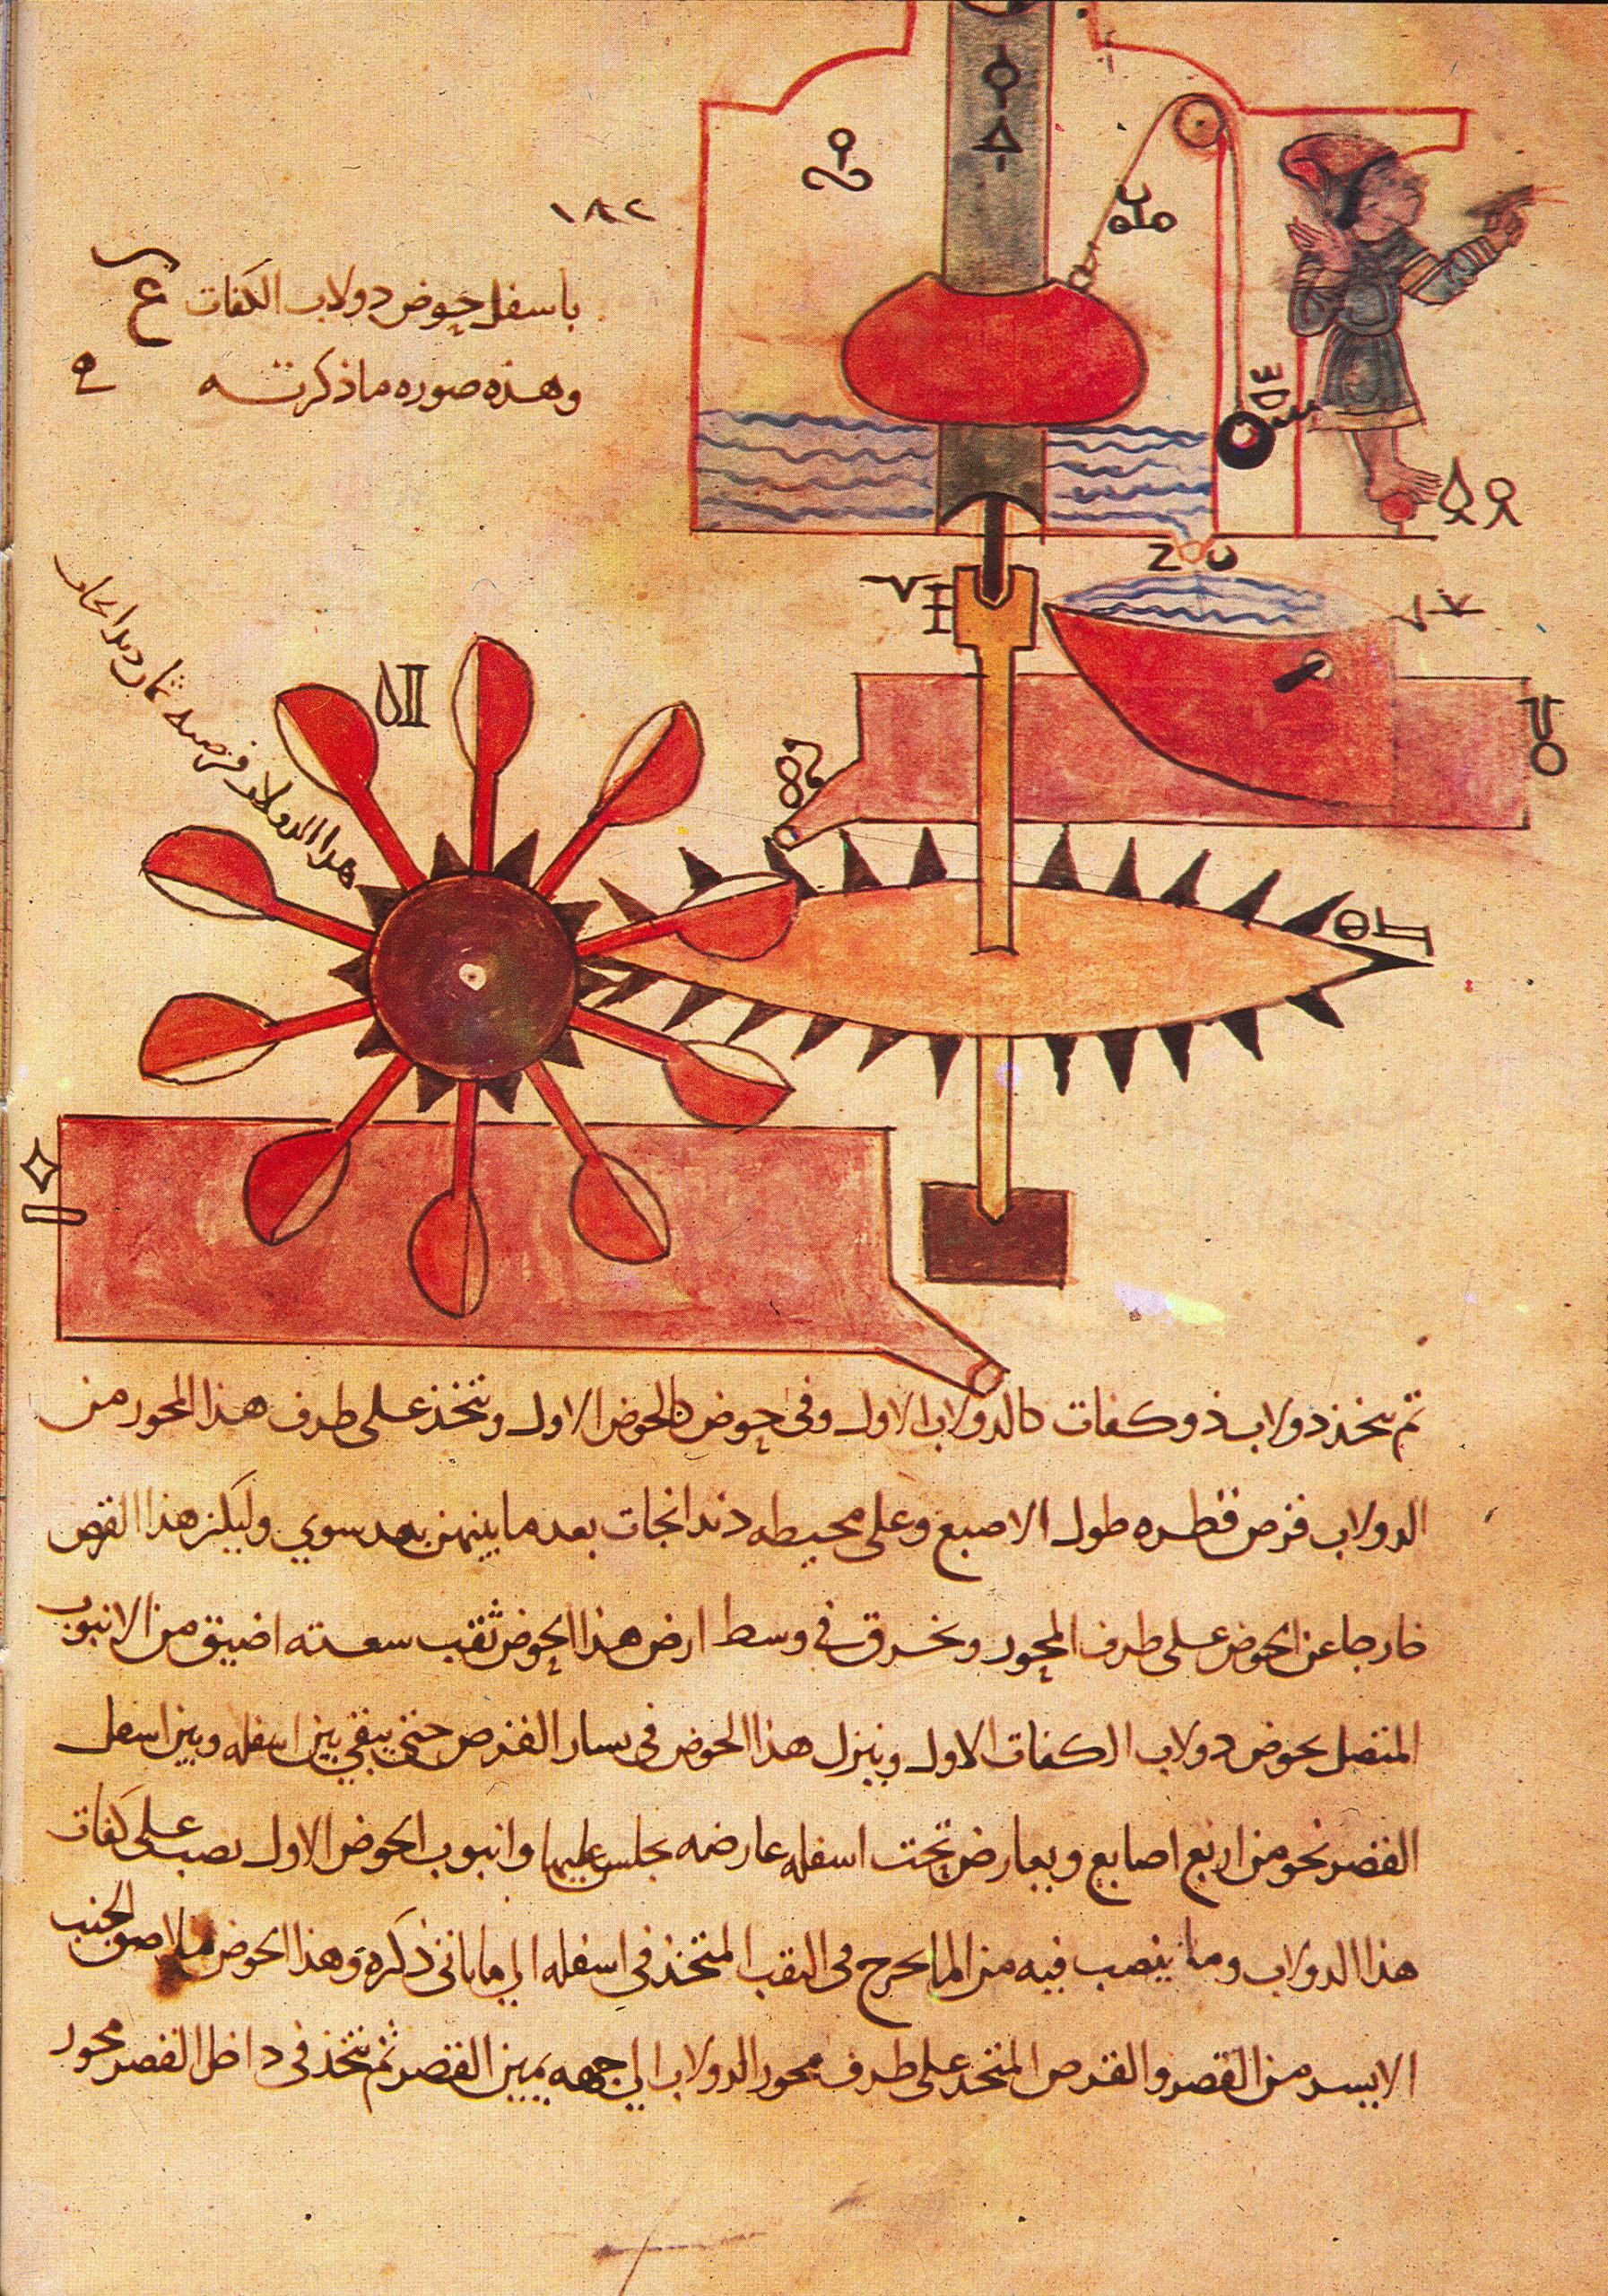 ١٨٢
باسفل حوض دولاب الكفات ع
وهذه صوره ما ذكرته
هذا الدولاب قرصه ثمان دندانجات
ثم يتخذ دولاب ذو كفات كالدولاب الاول وفى حوض كالحوض الاول ويتخذ على طرف هذا المحور من
الدولاب قرص قطره طول الاصبع وعلى محيطه دندانجات بعد ما بينهن بعد سوي وليكن هذا القرص
خارجا عن الحوض على طرف المحور ويخرق في وسط ارض هذا الحوض ثقب سعته اضيق من الانبوب
المتصل بحوض دولاب الكفات الاول وينزل هذا الحوض فى يسار القصر حتى يبقى بين اسفله وبين اسفل
القصر نحو من اربع اصابع ويعارض تحت اسفله عارضه يجلس عليها وانبوب الحوض الاول يصب على كفات
هذا الدولاب وما ينصب فيه من الما يخرج فى الثقب المتخذ فى اسفله الى ما ياتى ذكره وهذا الحوض ملاصق الجنب
الايسر من القصر والقرص المتخذ على طرف محور الدولاب الى جهه يمين القصر ثم يتخذ فى داخل القصر محور